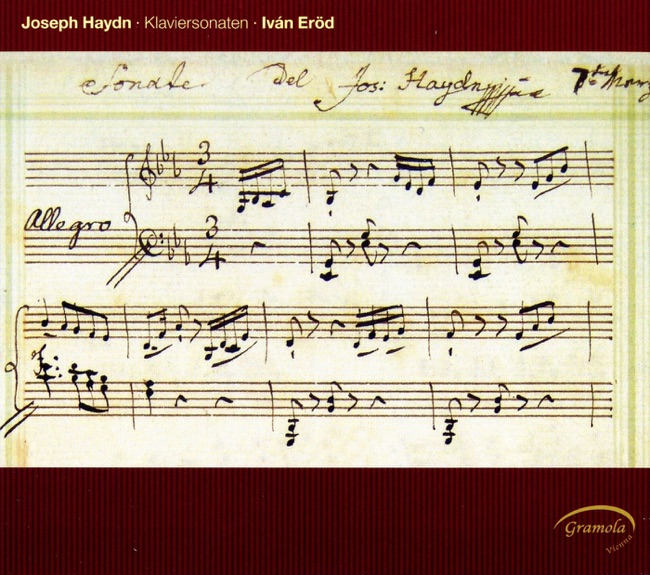 Joseph Haydn · Klaviersonaten · Iván Eröd
Sonate Del Jos: Haydn
3 4
Allegro
3 4
Gramola
Vienna